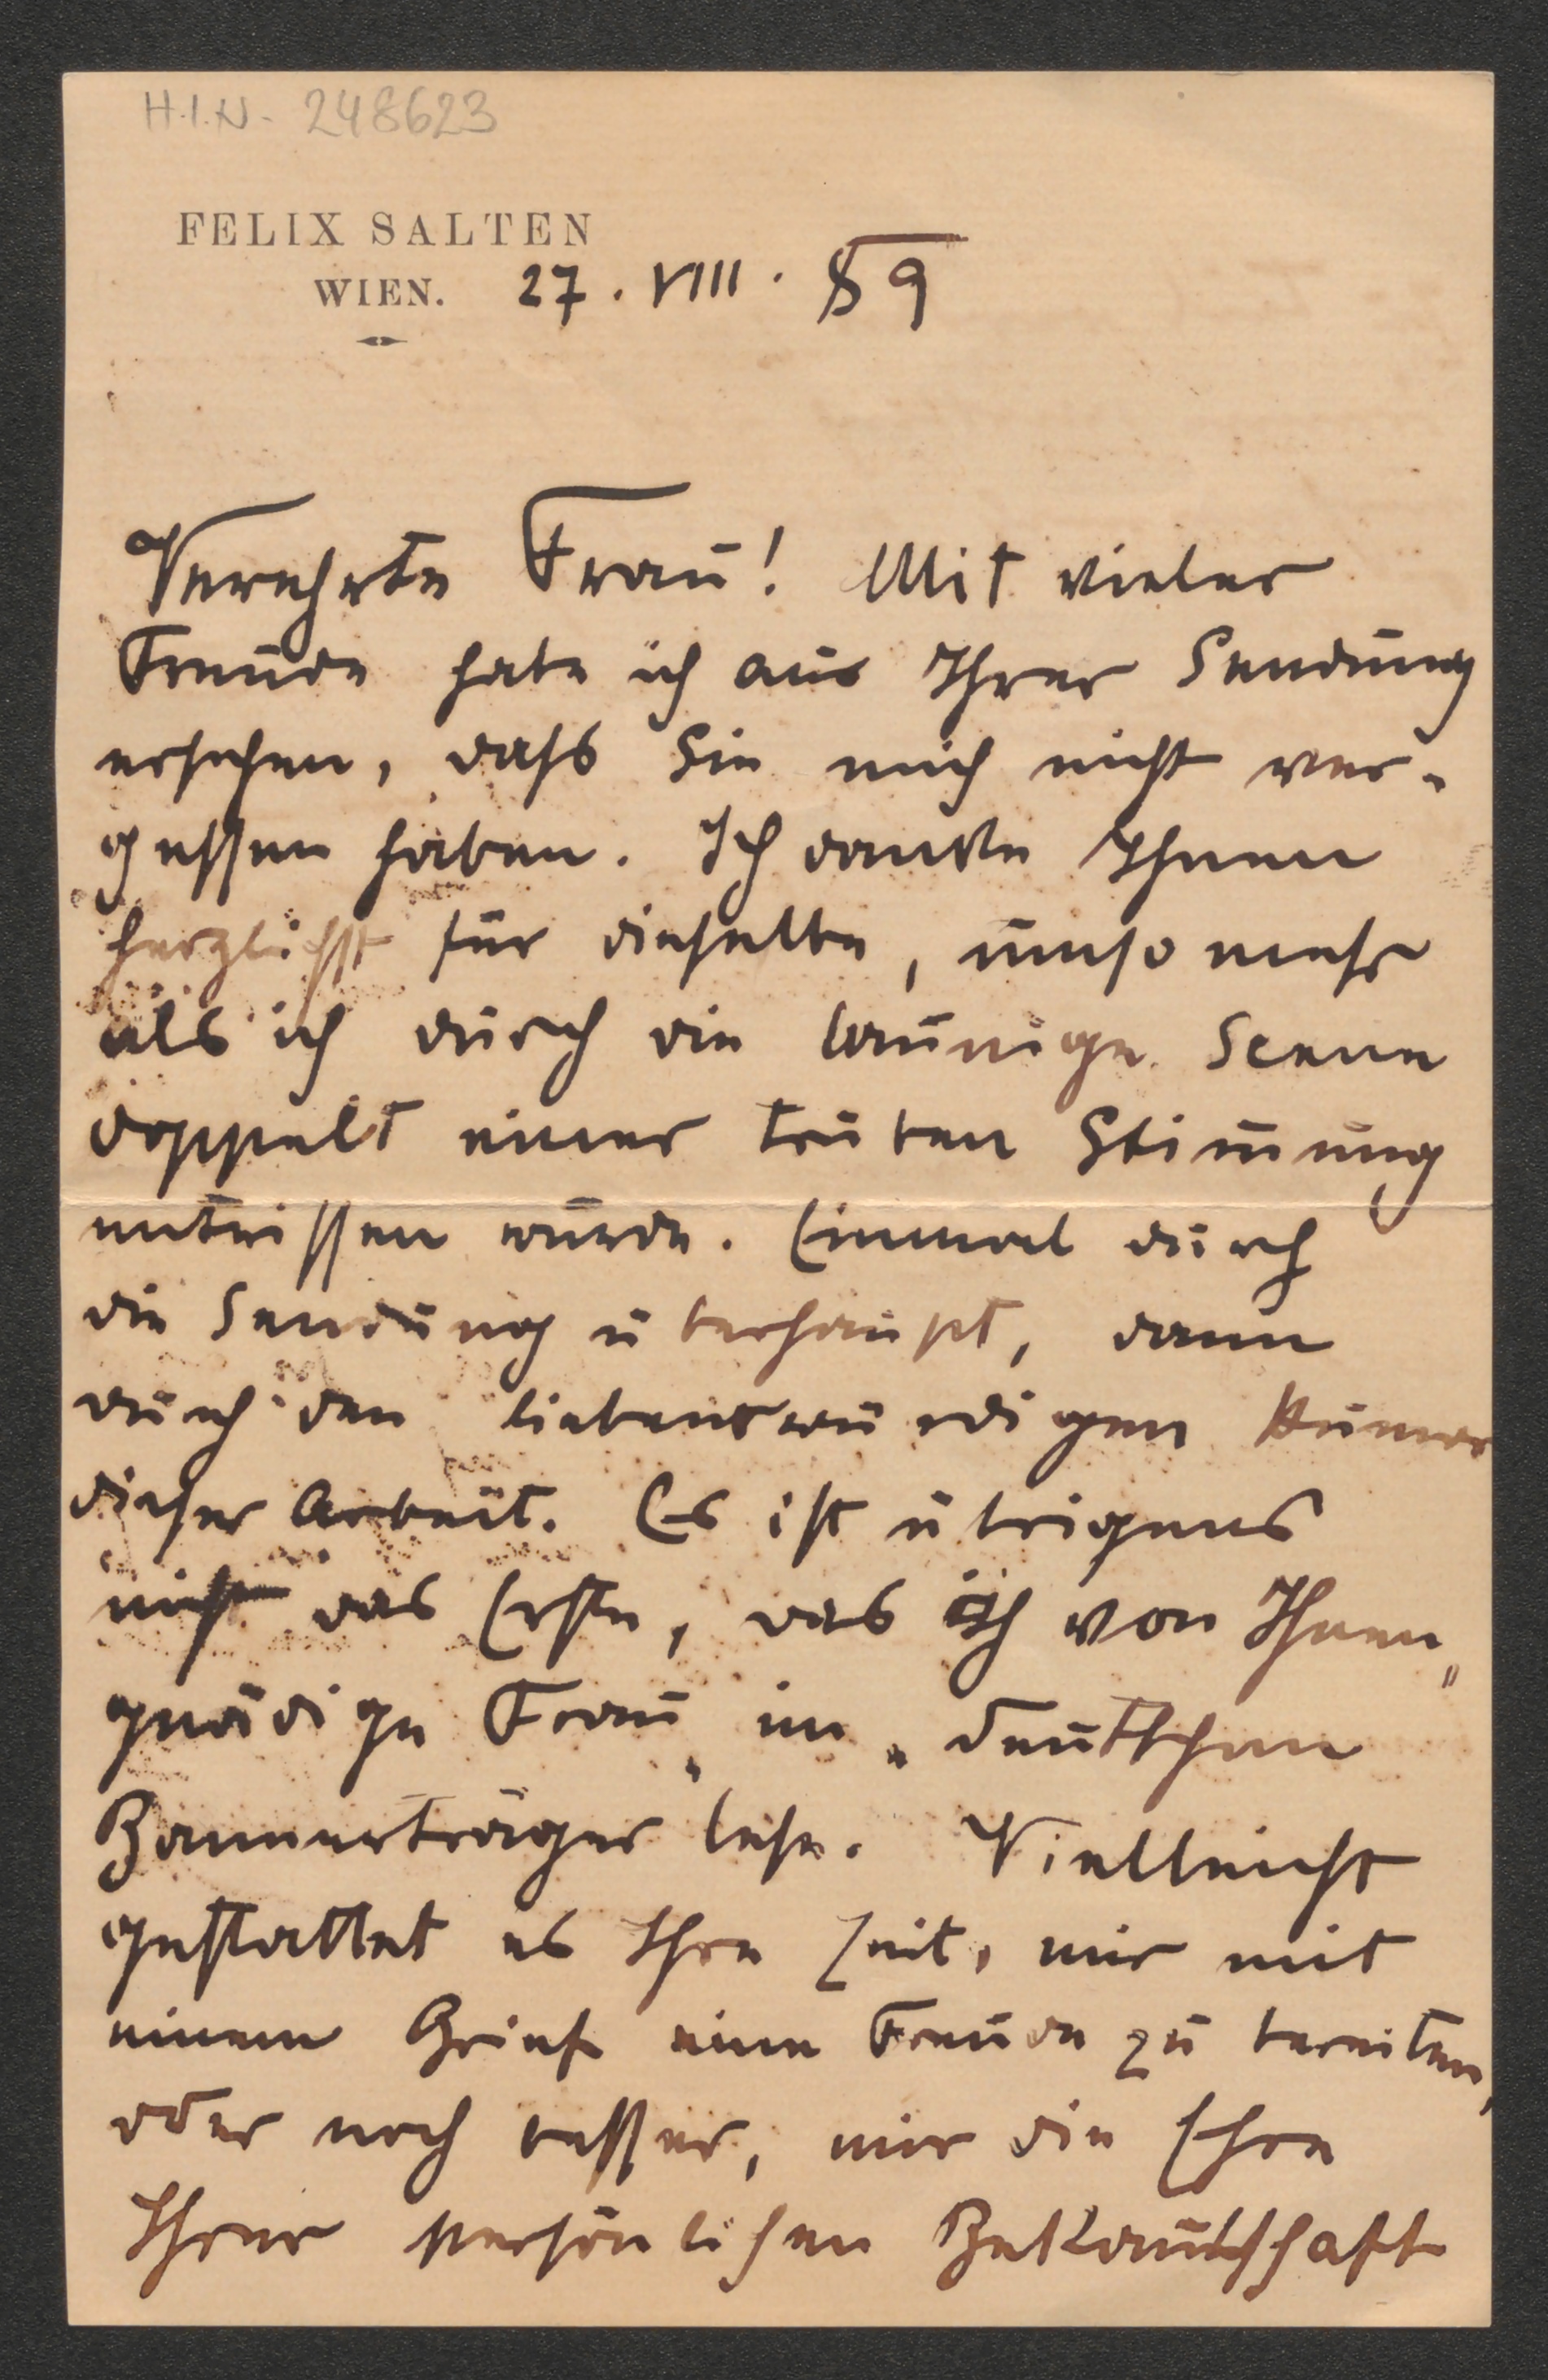 H.I.N. 248623
FELIX SALTEN
WIEN. 27. VIII. 89
Verehrte Frau! Mit vieler
Freude habe ich aus Ihrer Sendung
ersehen, dass Sie mich nicht ver-
gessen haben. Ich danke Ihnen
herzlichst für dieselbe, umso mehr
als ich durch die launige Scene
doppelt einer trüben Stim̅ung
entrissen wurde. Einmal durch
die Sendung überhaupt, dann
durch den liebenswürdigen Humor
dieser Arbeit. Es ist übrigens
nicht das Erste, das ich von Ihnen,
gnädige Frau, im „deutschen
Bannerträger“ lese. Vielleicht
gestattet es Ihre Zeit, mir mit
einem Brief eine Freude zu bereiten,
oder noch besser, mir die Ehre
Ihrer persönlichen Bekan̅tschaft